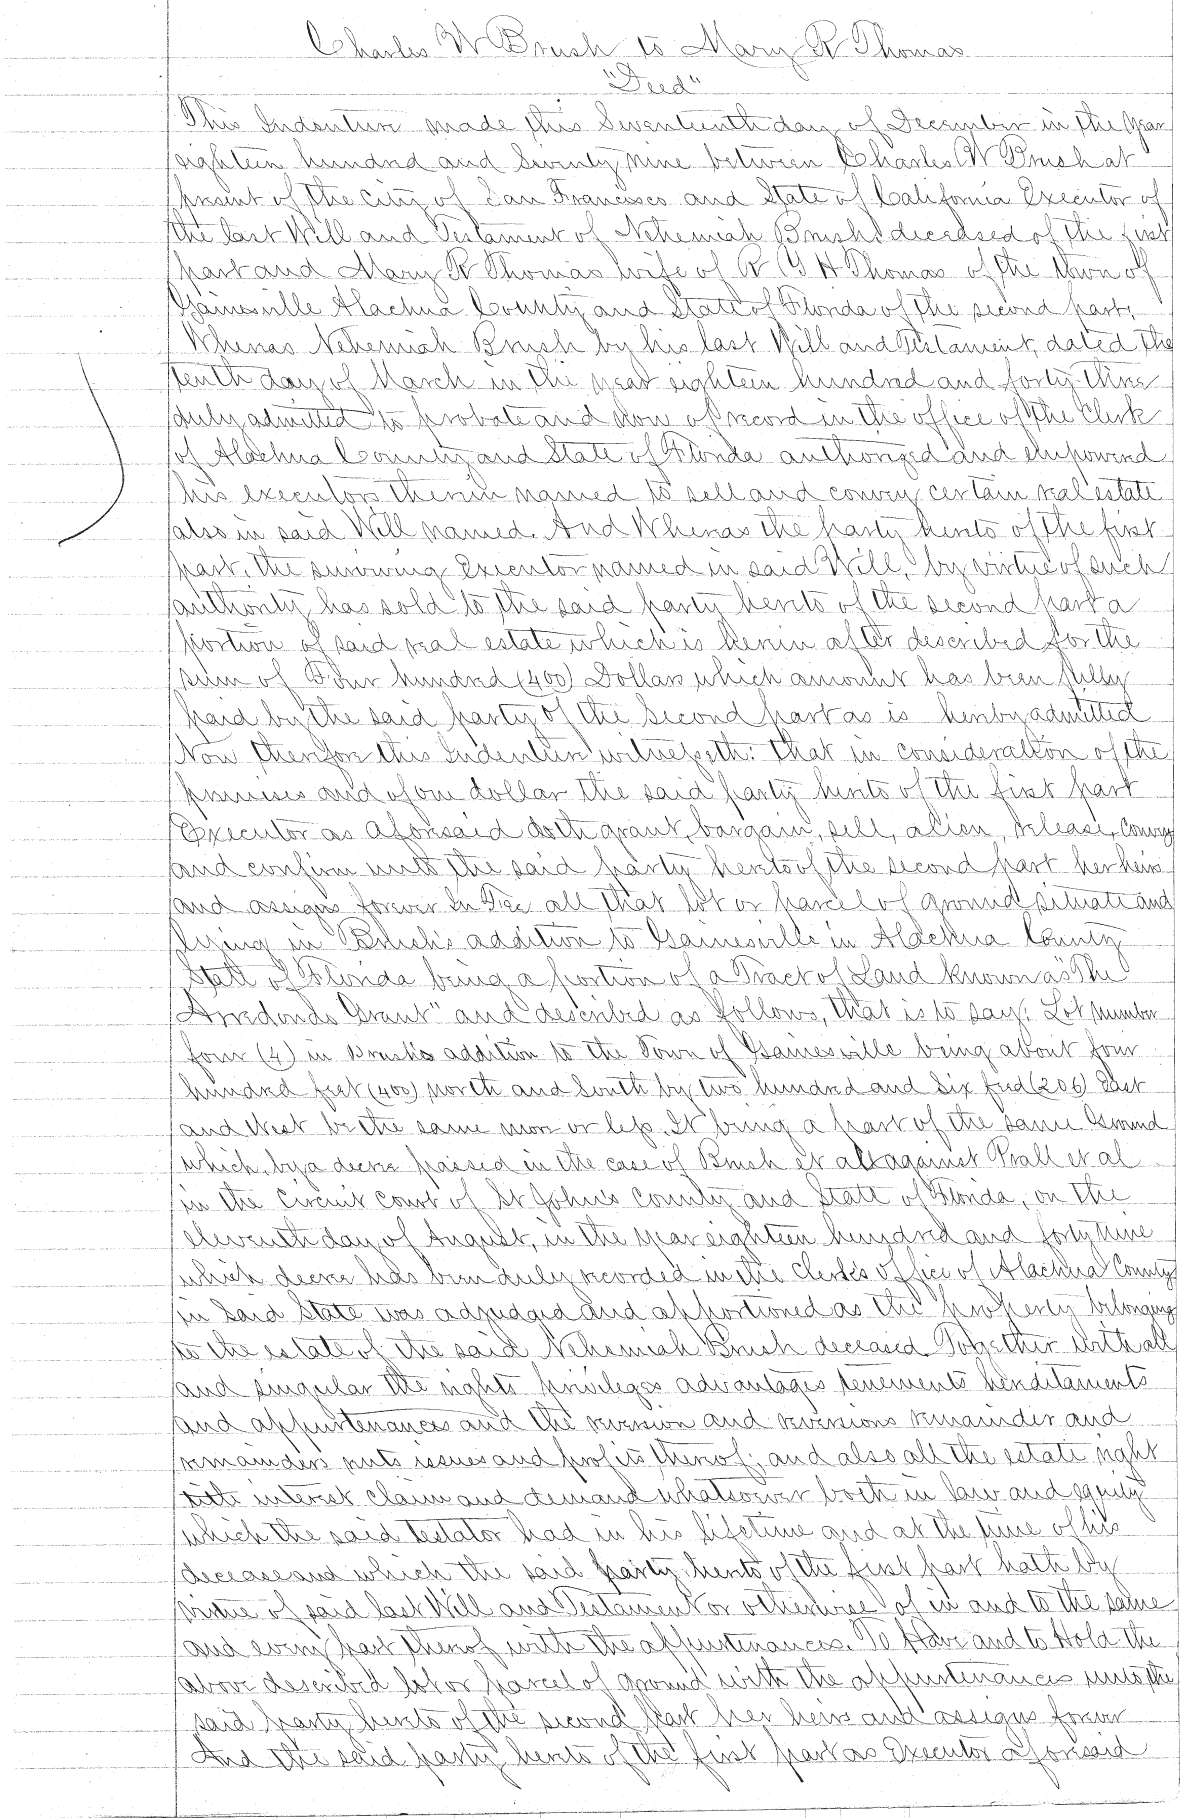 Charles W Brush to Mary R Thomas
"Deed"
This Indenture made this Seventeenth day of December in the year
eighteen hundred and Seventy nine between Charles W Brush at
present of the city of San Francisco and State of California Executor of
the last Will and Testament of Nehemiah Brush deceased of the first
part and Mary R Thomas wife of R G H Thomas of the town of
Gainesville Alachua County and State of Florida of the second part,
Whereas Nehemiah Brush by his last Will and Testament, dated the
tenth day of March in the year eighteen hundred and forty three
duly admitted to probate and now of record in the office of the Clerk
of Alachua County and State of Florida authorized and empowered
his executors therein named to sell and convey certain real estate
also in said Will named. And Whereas the party hereto of the first
part, the surviving Executor named in said Will, by virtue of such
authority has sold to the said party hereto of the second part a
portion of said real estate which is herein after described for the
sum of Four hundred (400) Dollars which amount has been fully
paid by the said party of the Second part as is hereby admitted
Now therefore this Indenture witnesseth: that in consideration of the
premises and of one dollar the said party hereto of the first part
Executor as aforesaid doth grant, bargain, sell, alien, release, convey
and confirm unto the said party hereto of the second part her heirs
and assigns forever In Fee all that lot or parcel of ground situate and
lying in Brush's addition to Gainesville in Alachua County
State of Florida being a portion of a Tract of Land known as "The
Arredondo Grant" and described as follows, that is to say: Lot number
four (4) in Brush's addition to the Town of Gainesville being about four
hundred feet (400) north and South by two hundred and Six feed (206) East
and West be the same more or less. It being a part of the same Ground
which, by a decree passed in the case of Brush et al against Prall et al
in the Circuit Court of St John's County and State of Florida, on the
eleventh day of August, in the year eighteen hundred and forty nine
which decree has been duly recorded in the Clerk's office of Alachua County
in Said State was adjudged and apportioned as the property belonging
to the estate of the said Nehemiah Brush deceased Together with all
and singular the rights privileges advantages tenements hereditaments
and appurtenances and the reversion and reversions remainder and
remainders rents issues and profits thereof; and also all the estate right
title interest claim and demand whatsoever both in law and equity
which the said testator had in his lifetime and at the time of his
decease and which the said party hereto of the first part hath by
virtue of said last Will and Testament or otherwise of in and to the same
and every part thereof with the appurtenances. To Have and to Hold the
above described lot or parcel of ground with the appurtenances unto the
said party hereto of the second part her heirs and assigns forever
And the said party hereto of the first part as Executor aforesaid